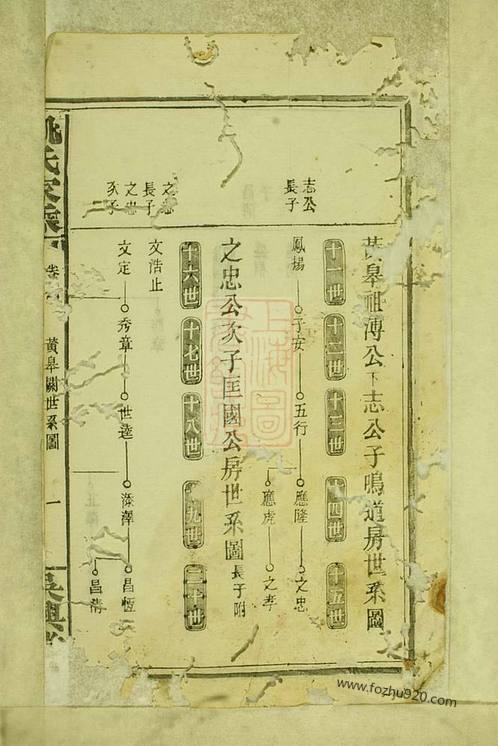 黃皋祖溥公下志公子鳴道房世系圖
十一世 十二世 十三世 十四世 十五世
志公
長子
鳳楊 子安 五行 應隆 之忠
應虎 之孝
之忠公次子匡國公房世系圖 長子附
十六世 十七世 十八世 十九世 二十世
之忠
長子
文浩止
之忠
次子 二
文定 秀章 世逵 澤 昌恆
昌清
姚氏家乘
卷
黃皋闕世系圖
一
吳興
www.fozhu920.com